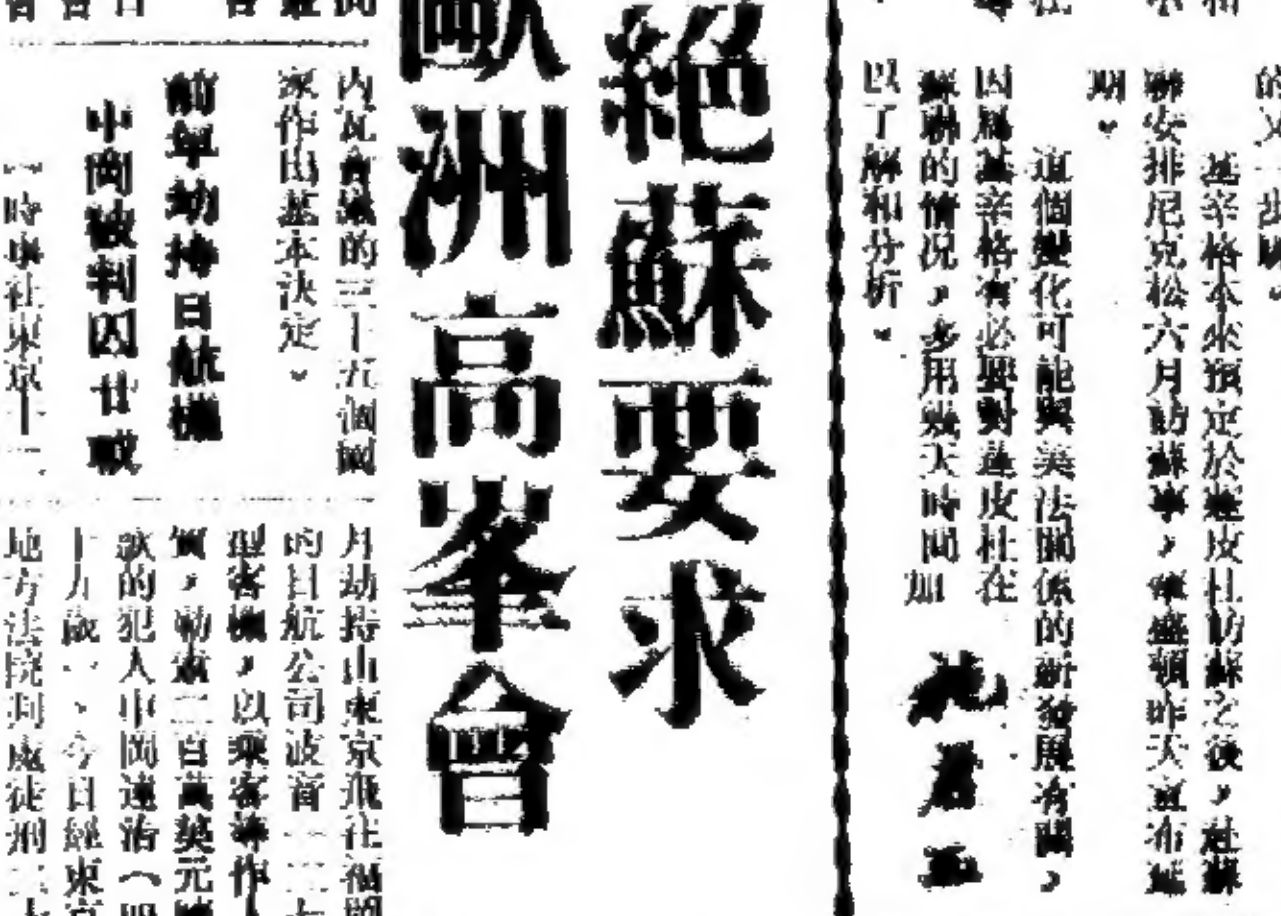 的又一步驟。
基辛格本來預定於蓬皮杜訪蘇之後，赴蘇
聯安排尼克松六月訪蘇事，華盛頓昨天宣布延
期。
這個變化可能與美法關係的新發展有關，
因爲基辛格有必要對蓬皮杜在
蘇聯的情況，多用幾天時間加
以了解和分析。
絕蘇要求
歐洲高峯會
內瓦會議的三十五個國
家作出基本決定。
前年劫持日航機
中岡被判囚廿載
（時事社東京十二
月劫持由東京飛往福岡
的日航公司波音七二七
型客機，以乘客等作人
質，勒索二百萬美元贖
款的犯人中岡達治（四
十九歲），今日經東京
地方法院判處徒刑二十